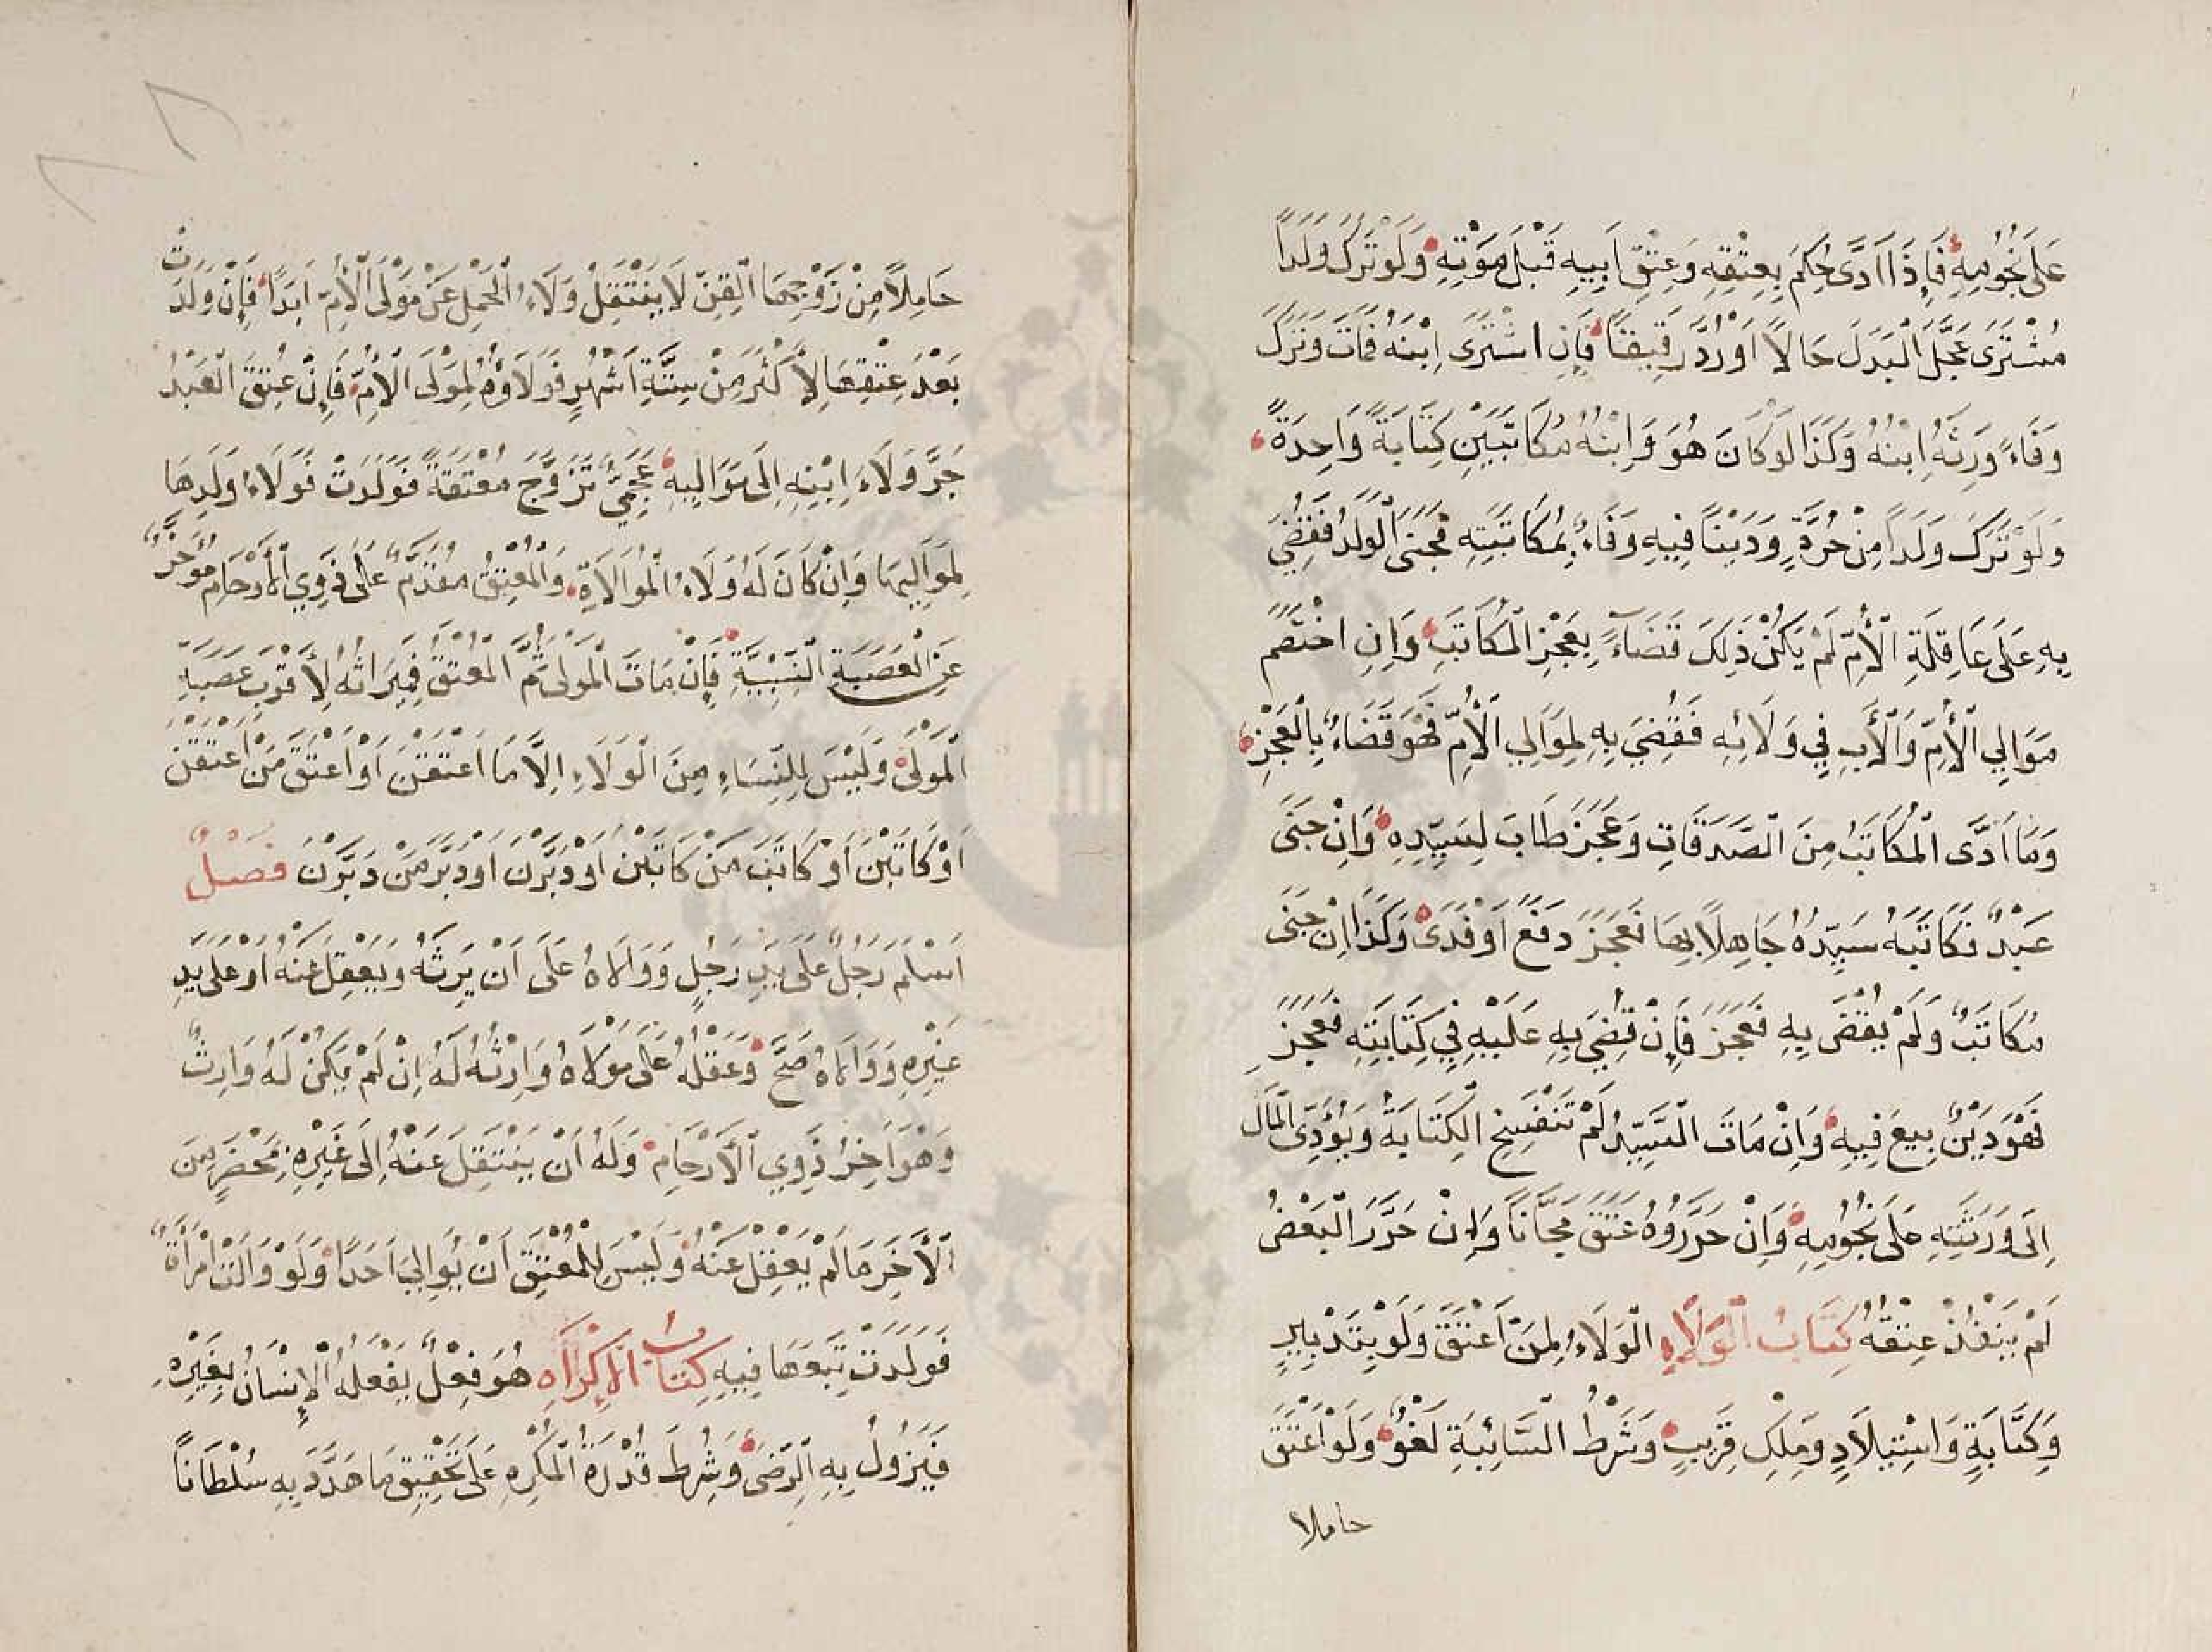 عَلَى نُجُومِهِ فَإِذَا أَدَّى حُكِمَ بِعِتْقِهِ وَعِتْقِ أَبِيهِ قَبْلَ مَوْتِهِ وَلَوْ تَرَكَ وَلَدًا
مُشْتَرَى عَجَّلَ الْبَدَلَ حَالًا أَوْ رُدَّ رَقِيقًا فَإِنِ اشْتَرَى ابْنَهُ فَمَاتَ وَتَرَكَ
وَفَاءً وَرِثَهُ ابْنُهُ وَكَذَا لَوْ كَانَ هُوَ وَابْنُهُ مُكَاتَبَيْنِ كِتَابَةً وَاحِدَةً
وَلَوْ تَرَكَ وَلَدًا مِنْ حُرَّةٍ وَدَيْنًا فِيهِ وَفَاءٌ بِمُكَاتَبَتِهِ فَجَنَى الْوَلَدُ فَقُضِيَ
بِهِ عَلَى عَاقِلَةِ الْأُمِّ لَمْ يَكُنْ ذَلِكَ قَضَاءً بِعَجْزِ الْمُكَاتَبِ وَإِنِ اخْتَصَمَ
مَوَالِي الْأُمِّ وَالْأَبِ فِي وَلَائِهِ فَقُضِيَ بِهِ لِمَوَالِي الْأُمِّ فَهُوَ قَضَاءٌ بِالْعَجْزِ
وَمَا أَدَّى الْمُكَاتَبُ مِنَ الصَّدَقَاتِ وَعَجَزَ طَابَ لِسَيِّدِهِ وَإِنْ جَنَى
عَبْدٌ فَكَاتَبَهُ سَيِّدُهُ جَاهِلًا بِهَا فَعَجَزَ دَفَعَ أَوْ فَدَى وَكَذَا إِنْ جَنَى
مُكَاتَبٌ وَلَمْ يُقْضَ بِهِ فَعَجَزَ فَإِنْ قُضِيَ بِهِ عَلَيْهِ فِي كِتَابَتِهِ فَعَجَزَ
فَهُوَ دَيْنٌ بِيعَ فِيهِ وَإِنْ مَاتَ السَّيِّدُ لَمْ تَنْفَسِخِ الْكِتَابَةُ وَيُؤَدِّي الْمَالَ
إِلَى وَرَثَتِهِ عَلَى نُجُومِهِ وَإِنْ حَرَّرُوهُ عَتَقَ مَجَّانًا وَإِنْ حَرَّرَ الْبَعْضُ
لَمْ يَنْفُذْ عِتْقُهُ كِتَابُ الْوَلَاءِ الْوَلَاءُ لِمَنْ أَعْتَقَ وَلَوْ بِتَدْبِيرٍ
وَكِتَابَةٍ وَاسْتِيلَادٍ وَمِلْكِ قَرِيبٍ وَشَرْطُ السَّائِبَةِ لَغْوٌ وَلَوْ أَعْتَقَ
حاملا
حَامِلًا مِنْ زَوْجِهَا الْقِنِّ لَا يَنْتَقِلُ وَلَاءُ الْحَمْلِ عَنْ مَوْلَى الْأُمِّ أَبَدًا فَإِنْ وَلَدَتْ
بَعْدَ عِتْقِهَا لِأَكْثَرَ مِنْ سِتَّةِ أَشْهُرٍ فَوَلَاؤُهُ لِمَوْلَى الْأُمِّ فَإِنْ عُتِقَ الْعَبْدُ
جَرَّ وَلَاءَ ابْنِهِ إِلَى مَوَالِيهِ عَجَمِيٌّ تَزَوَّجَ مُعْتَقَةً فَوَلَدَتْ فَوَلَاءُ وَلَدِهَا
لِمَوَالِيهَا وَإِنْ كَانَ لَهُ وَلَاءُ الْمُوَالَاةِ وَالْمُعْتِقُ مُقَدَّمٌ عَلَى ذَوِي الْأَرْحَامِ مُؤَخَّرٌ
عَنِ الْعَصَبَةِ النَّسَبِيَّةِ فَإِنْ مَاتَ الْمَوْلَى ثُمَّ الْمُعْتَقُ فَمِيرَاثُهُ لِأَقْرَبِ عَصَبَةِ
الْمَوْلَى وَلَيْسَ لِلنِّسَاءِ مِنَ الْوَلَاءِ إِلَّا مَا أَعْتَقْنَ أَوْ أَعْتَقَ مَنْ أَعْتَقْنَ
أَوْ كَاتَبْنَ أَوْ كَاتَبَ مَنْ كَاتَبْنَ أَوْ دَبَّرْنَ أَوْ دَبَّرَ مَنْ دَبَّرْنَ فَصْلٌ
أَسْلَمَ رَجُلٌ عَلَى يَدِ رَجُلٍ وَوَالَاهُ عَلَى أَنْ يَرِثَهُ وَيَعْقِلَ عَنْهُ أَوْ عَلَى يَدِ
غَيْرِهِ وَوَالَاهُ صَحَّ وَعَقْلُهُ عَلَى مَوْلَاهُ وَإِرْثُهُ لَهُ إِنْ لَمْ يَكُنْ لَهُ وَارِثٌ
وَهُوَ آخِرُ ذَوِي الْأَرْحَامِ وَلَهُ أَنْ يَنْتَقِلَ عَنْهُ إِلَى غَيْرِهِ بِمَحْضَرٍ مِنَ
الْآخَرِ مَا لَمْ يَعْقِلْ عَنْهُ وَلَيْسَ لِلْمُعْتَقِ أَنْ يُوَالِيَ أَحَدًا وَلَوْ وَالَتْ امْرَأَةٌ
فَوَلَدَتْ تَبِعَهَا فِيهِ كِتَابُ الْإِكْرَاهِ هُوَ فِعْلٌ يَفْعَلُهُ الْإِنْسَانُ بِغَيْرِهِ
فَيَزُولُ بِهِ الرِّضَى وَشُرِطَ قُدْرَةُ الْمُكْرِهِ عَلَى تَحْقِيقِ مَا هَدَّدَ بِهِ سُلْطَانًا